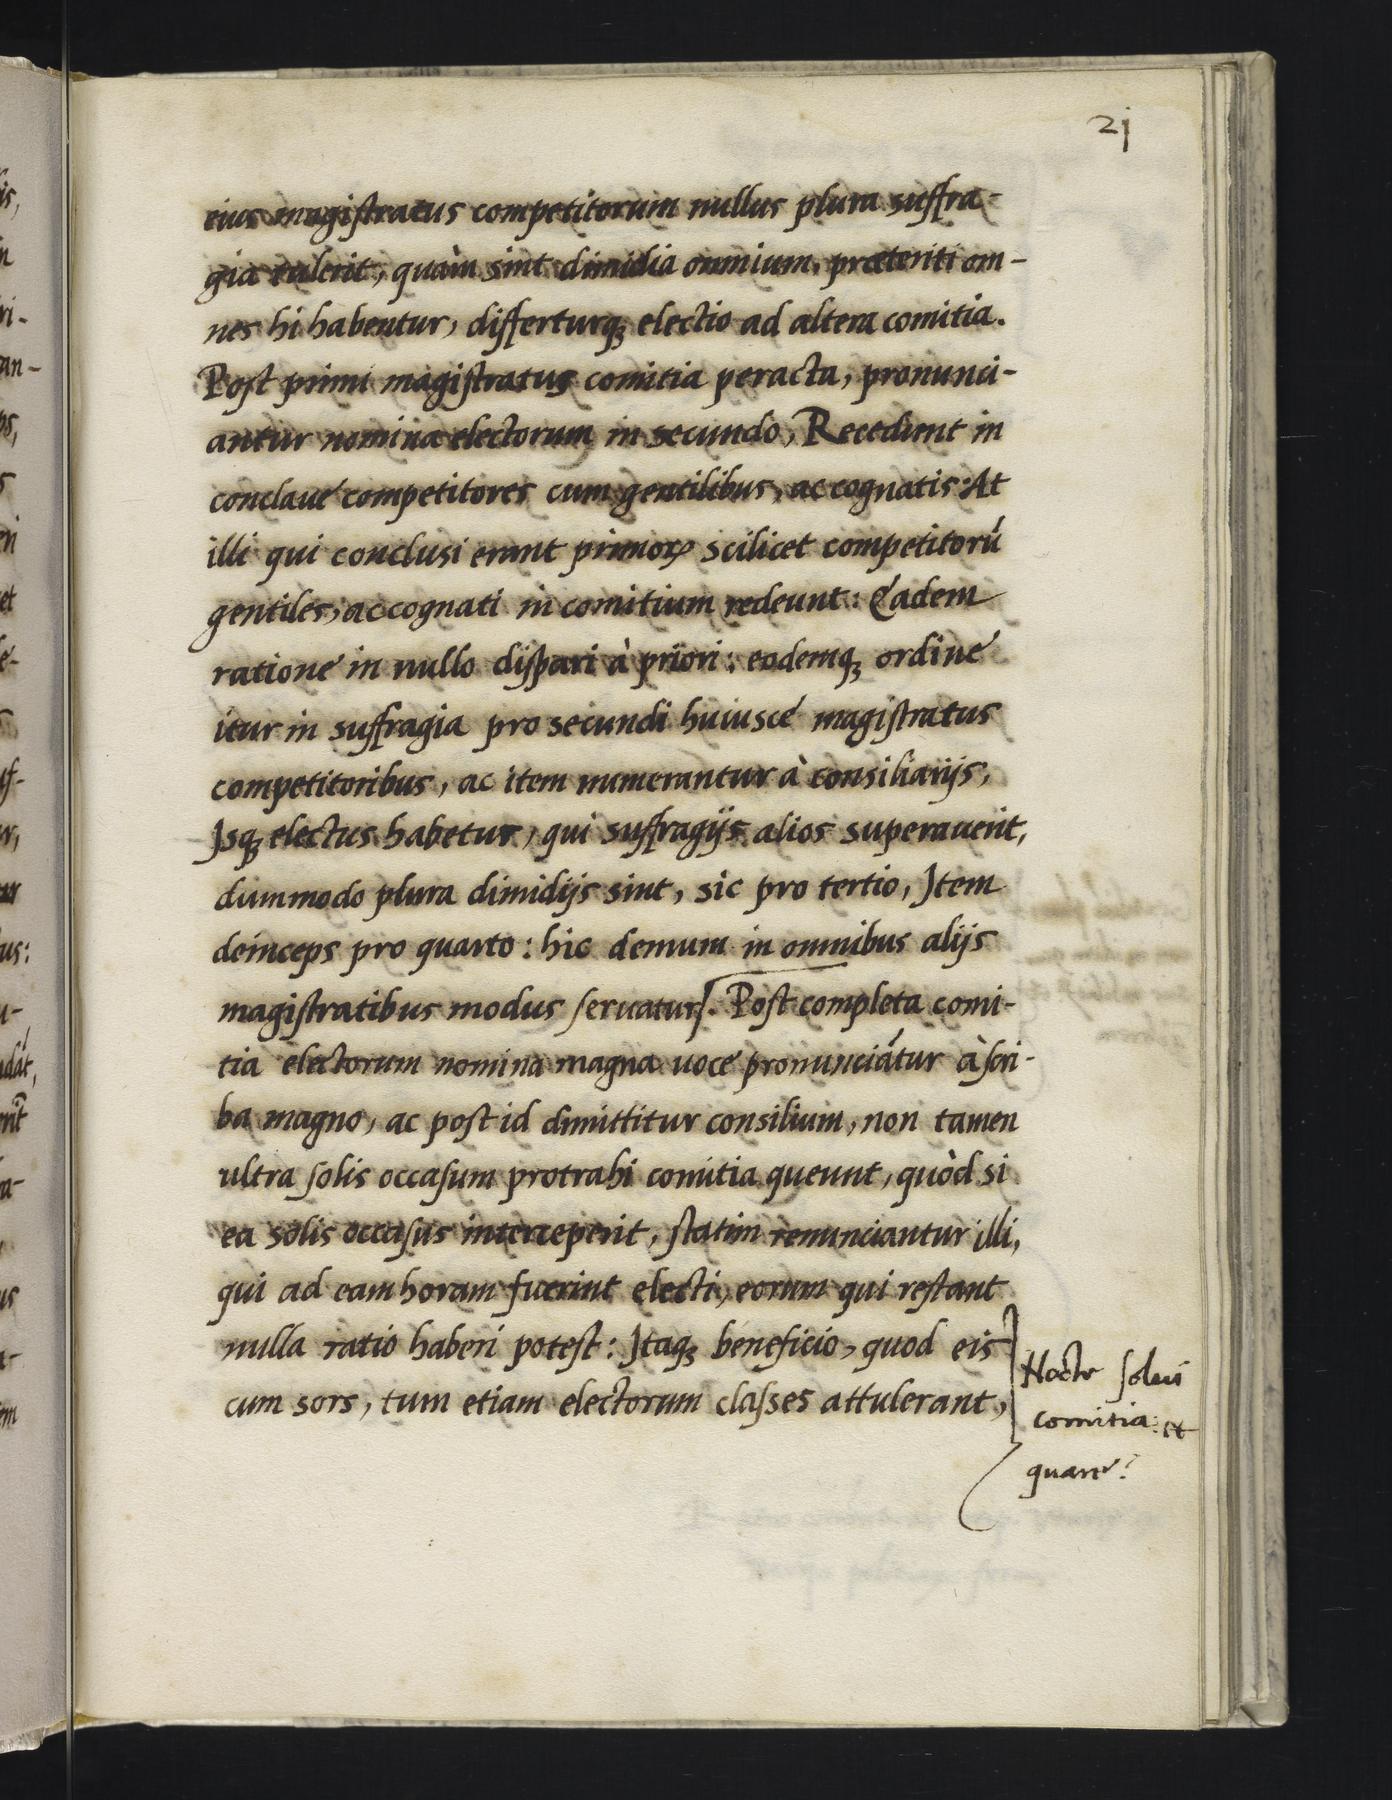 21
eius magistratus competitorum nullus plura suffra-
gia tulerit, quàm sint dimidia omnium, præteriti om-
nes hi habentur, differturq; electio ad altera comitia.
Post primi magistratus comitia peracta, pronunci-
antur nomina electorum in secundo, Recedunt in
conclaue competitores cum gentilibus, ac cognatis: At
illi qui conclusi erant primoꝝ scilicet competitorū
gentiles, ac cognati in comitium redeunt: Eadem
ratione in nullo dispari à priori: eodemq; ordine
itur in suffragia pro secundi huiusce magistratus
competitoribus, ac item numerantur à consiliarijs,
Isq; electus habetur, qui suffragijs alios superauerit,
dummodo plura dimidijs sint, sic pro tertio, Item
deinceps pro quarto: hic demum in omnibus alijs
magistratibus modus seruatur. Post completa comi-
tia electorum nomina magna uoce pronunciātur à scri-
ba magno, ac post id dimittitur consilium, non tamen
ultra solis occasum protrahi comitia queunt, quòd si
ea solis occasus interceperit, statim renunciantur illi,
qui ad eam horam fuerint electi, eorum qui restant
nulla ratio haberi potest: Itaq; beneficio, quod eis
cum sors, tum etiam electorum classes attulerant,
Nocte solui
comitia: et
quare?